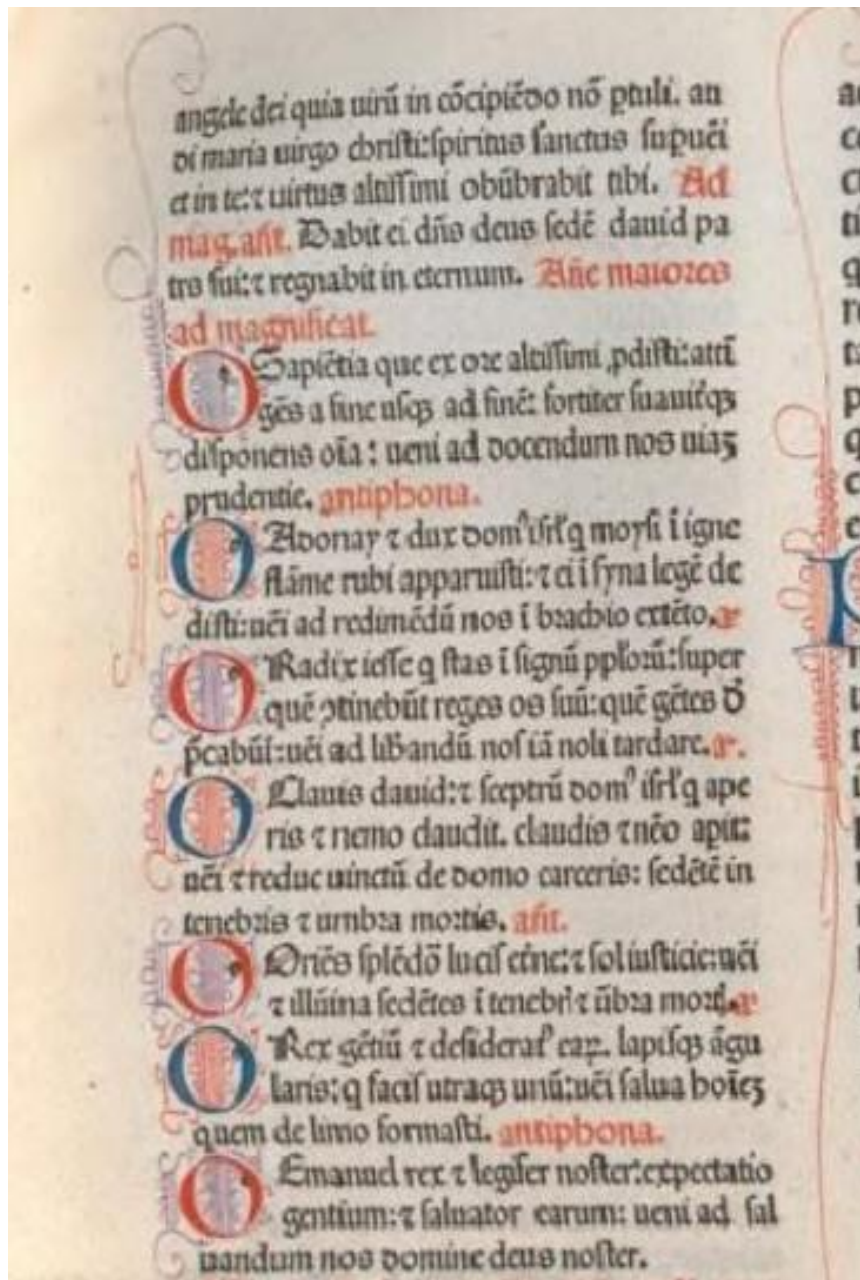 angele dei quia uirū in cōcipiēdo nō ꝑtuli. au
di maria uirgo christi: spiritus sanctus supueī
et in te: ⁊ uirtus altissimi obūbrabit tibi. Ad
mag. añt. Dabit ei dñs deus sedē dauid pa
tris sui: ⁊ regnabit in eternum. Añe maiores
ad magnificat.
O Sapiētia que ex ore altissimi ꝓdisti: attī
gēs a fine usqꝫ ad finē: fortiter suauit̄qꝫ
disponens oīa: ueni ad docendum nos uiaꝫ
prudentie. antiphona.
O Adonay ⁊ dux domꝰ isrl̓ q moysi ī igne
flāme rubi apparuisti: ⁊ ei ī syna legē de
disti: uēi ad redimēdū nos ī brachio extēto. a
O Radix iesse q stas ī signū ppl̓orū: super
quē ꝯtinebūt reges os suū: quē gētes d̄
p̄cabūt̄: uēi ad lib̄andū nos iā noli tardare. a.
O Clauis dauid: ⁊ sceptrū domꝰ isrl̓ q ape
ris ⁊ nemo claudit. claudis ⁊ nēo apit:
uēi ⁊ reduc uinctū de domo carceris: sedētē in
tenebris ⁊ umbra mortis. añt.
O Oriēs splēdō lucis etne: ⁊ sol iusticie: uēi
⁊ illūina sedētes ī tenebrꝭ ⁊ ūbra mortꝭ. a
O Rex gētiū ⁊ desideratꝰ eaꝝ. lapisqꝫ āgu
laris: q facis utraqꝫ unū: uēi salua hoīeꝫ
quem de limo formasti. antiphona.
O Emanuel rex ⁊ legifer noster: expectatio
gentium: ⁊ saluator earum: ueni ad sal
uandum nos domine deus noster.